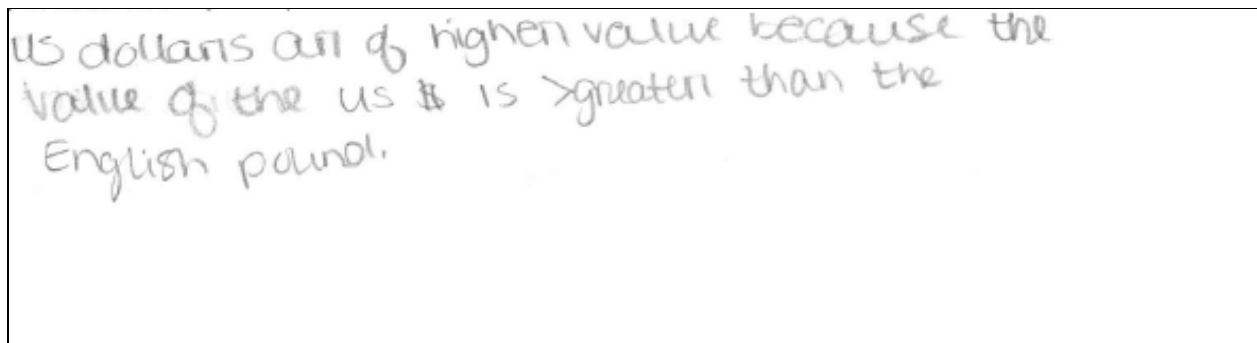 US dollars are of higher value because the
value of the US $ is >greater than the
English pound.